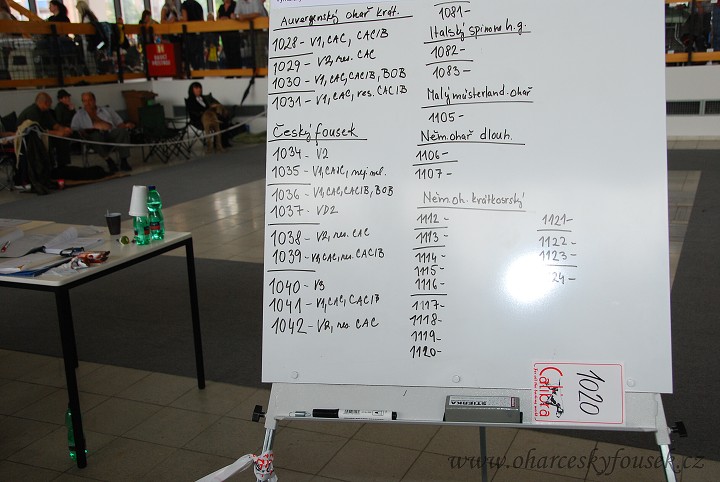 Auvergenský ohař krát.
1028 - V1, CAC, CACIB
1029 - V2, res. CAC
1030 - V1, CAC, CACIB, BOB
1031 - V1, CAC, res. CACIB
Český fousek
1034 - V2
1035 - V1, CAJC, nej. ml.
1036 - V1, CAC, CACIB, BOB
1037 - VD2
1038 - V2, res. CAC
1039 - V1, CAC, res. CACIB
1040 - V3
1041 - V1, CAC, CACIB
1042 - V2, res. CAC
1081-
Italský spinone h.g.
1082-
1083-
Malý münsterland. ohař
1105-
Něm. ohař dlouh.
1106-
1107-
Něm. oh. krátkosrský
1112-
1113-
1114-
1115-
1116-
1117-
1118-
1119-
1120-
1121-
1122-
1123-
24-
STIEFEA
Calibra
1020
www.oharceskyfousek.cz